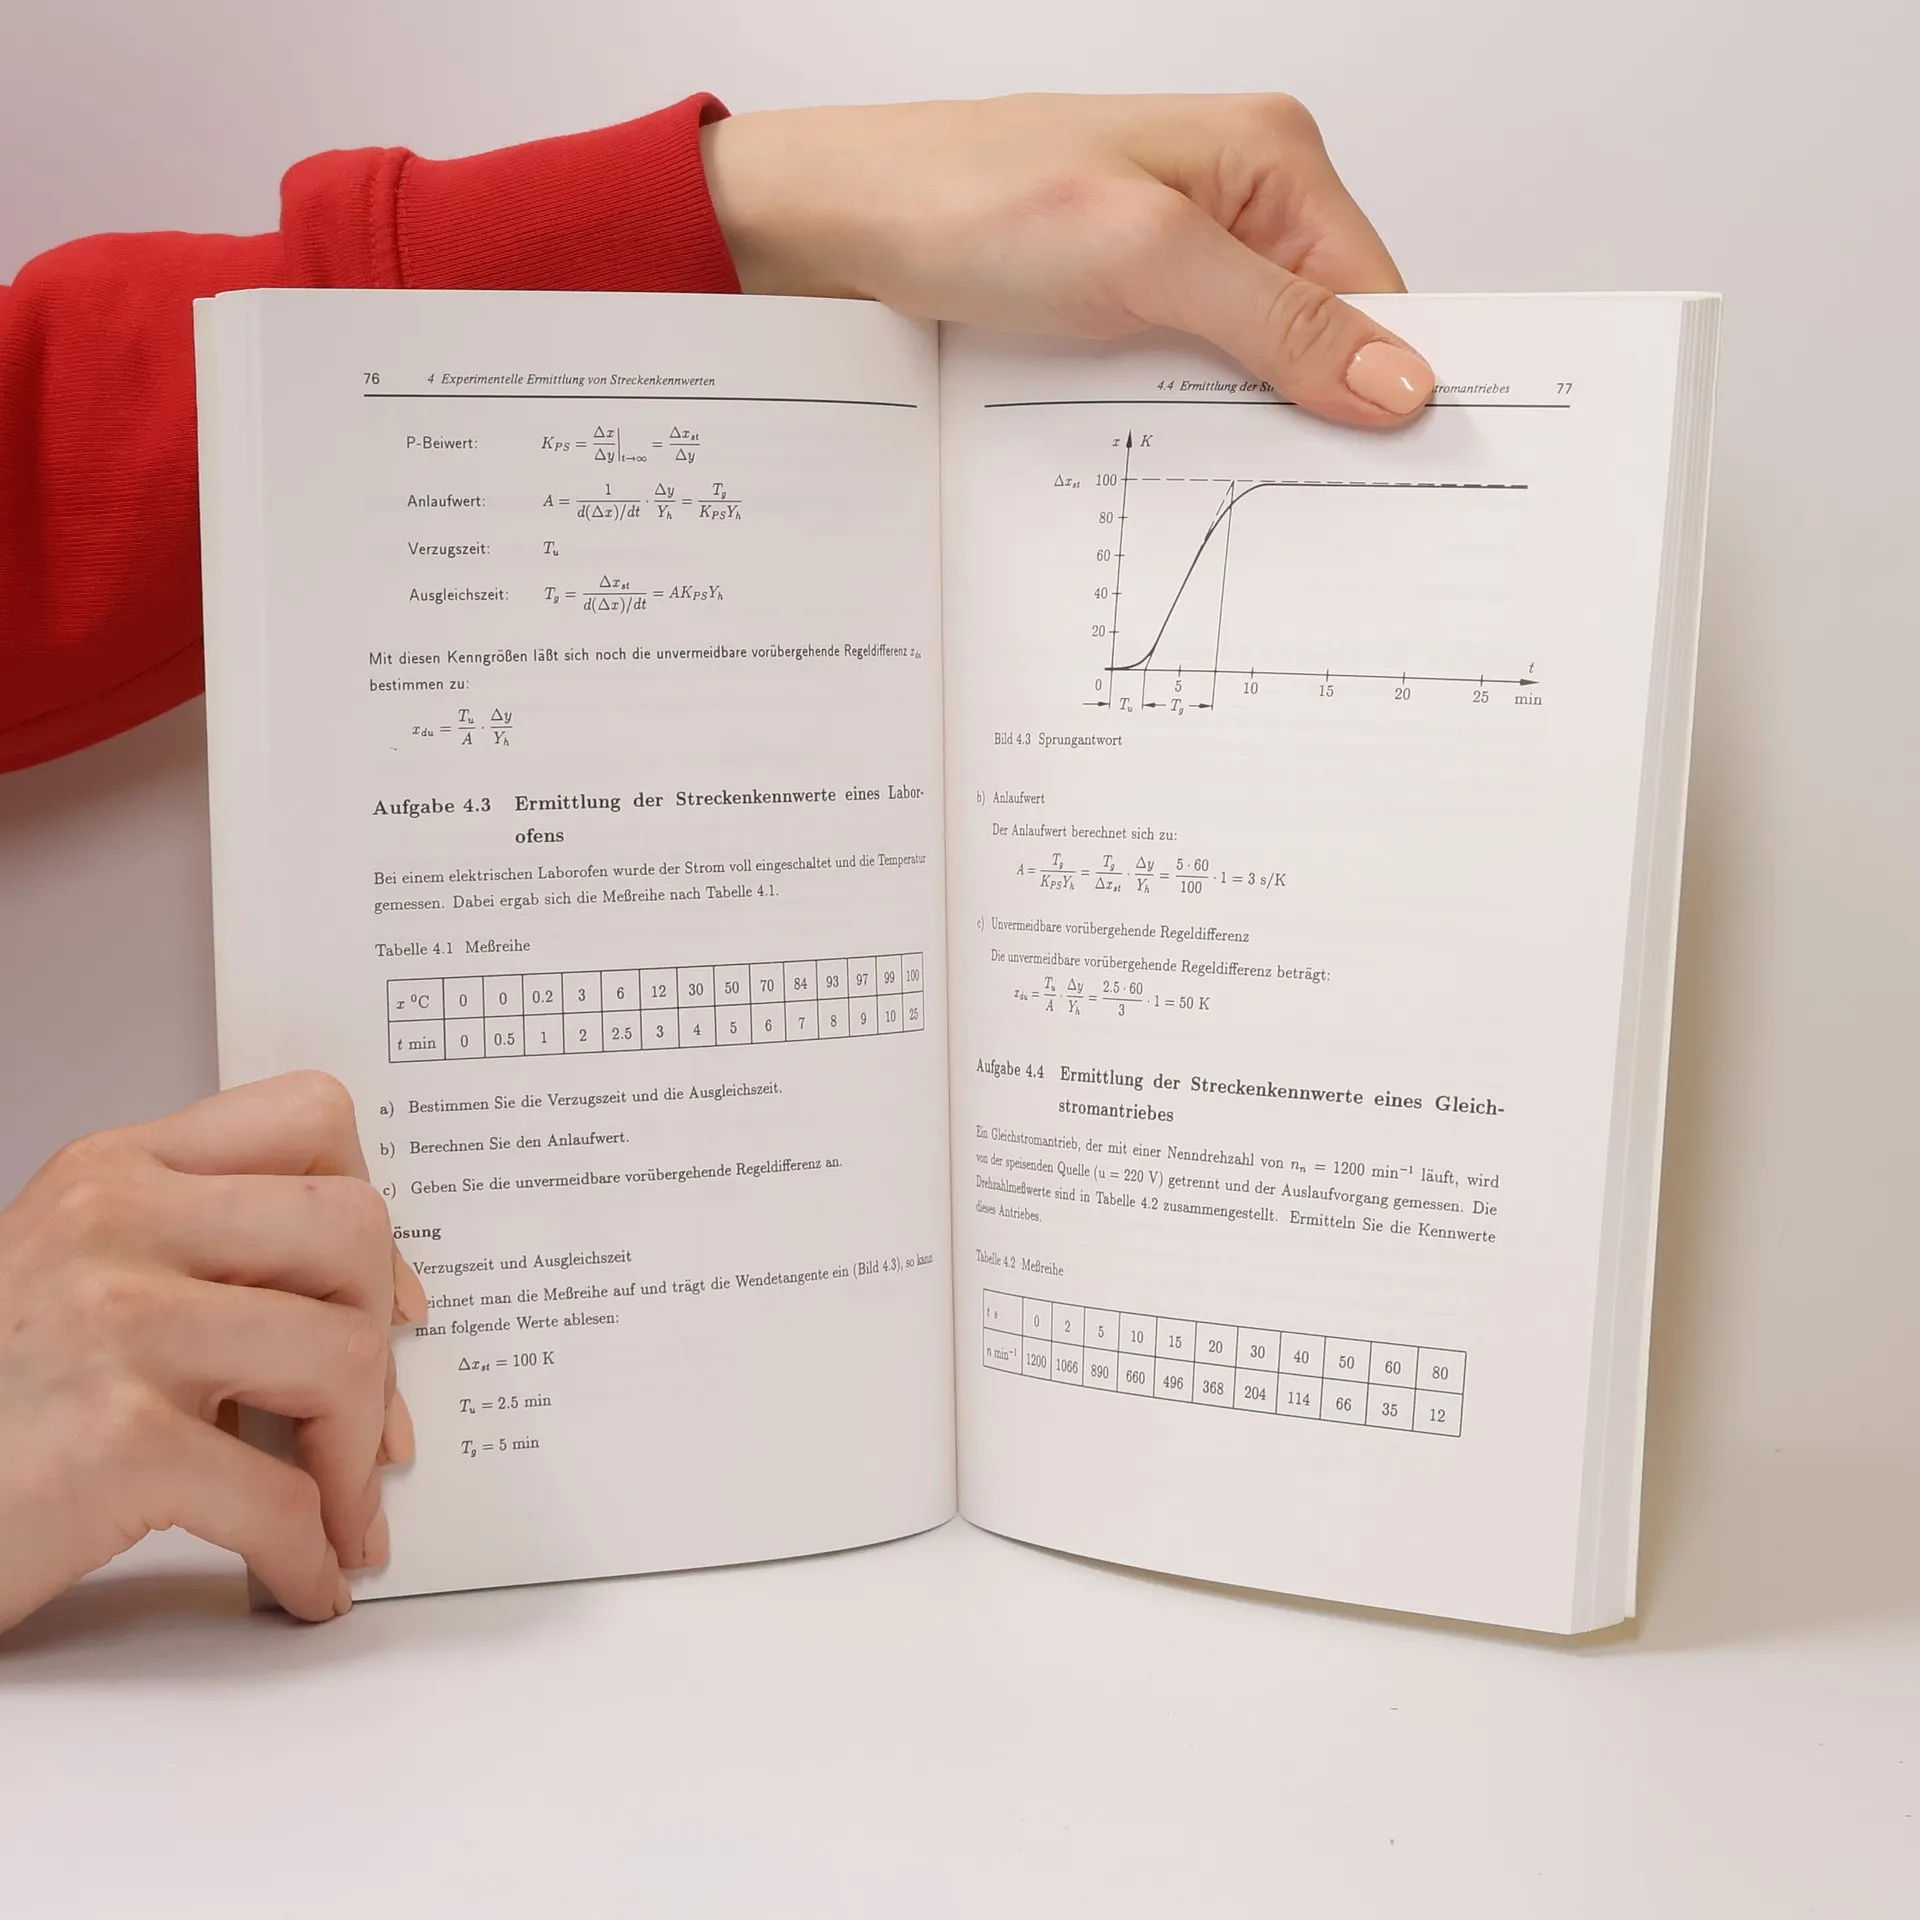 76 4 Experimentelle Ermittlung von Streckenkennwerten
P-Beiwert: K_PS = Δx/Δy |t→∞ = Δx_st/Δy
Anlaufwert: A = 1/(d(Δx)/dt) · Δy/Y_h = T_g/(K_PS Y_h)
Verzugszeit: T_u
Ausgleichszeit: T_g = Δx_st/(d(Δx)/dt) = AK_PS Y_h
Mit diesen Kenngrößen läßt sich noch die unvermeidbare vorübergehende Regeldifferenz x_du
bestimmen zu:
x_du = T_u/A · Δy/Y_h
Aufgabe 4.3 Ermittlung der Streckenkennwerte eines Labor-
ofens
Bei einem elektrischen Laborofen wurde der Strom voll eingeschaltet und die Temperatur
gemessen. Dabei ergab sich die Meßreihe nach Tabelle 4.1.
Tabelle 4.1 Meßreihe
x °C 0 0 0.2 3 6 12 30 50 70 84 93 97 99 100
t min 0 0.5 1 2 2.5 3 4 5 6 7 8 9 10 25
a) Bestimmen Sie die Verzugszeit und die Ausgleichszeit.
b) Berechnen Sie den Anlaufwert.
c) Geben Sie die unvermeidbare vorübergehende Regeldifferenz an.
ösung
Verzugszeit und Ausgleichszeit
eichnet man die Meßreihe auf und trägt die Wendetangente ein (Bild 4.3), so kann
man folgende Werte ablesen:
Δx_st = 100 K
T_u = 2.5 min
T_g = 5 min
4.4 Ermittlung der St tromantriebes 77
x K
Δx_st 100
80
60
40
20
t
0 5 10 15 20 25 min
T_u T_g
Bild 4.3 Sprungantwort
b) Anlaufwert
Der Anlaufwert berechnet sich zu:
A = T_g/(K_PS Y_h) = T_g/Δx_st · Δy/Y_h = 5 · 60/100 · 1 = 3 s/K
c) Unvermeidbare vorübergehende Regeldifferenz
Die unvermeidbare vorübergehende Regeldifferenz beträgt:
x_du = T_u/A · Δy/Y_h = 2.5 · 60/3 · 1 = 50 K
Aufgabe 4.4 Ermittlung der Streckenkennwerte eines Gleich-
stromantriebes
Ein Gleichstromantrieb, der mit einer Nenndrehzahl von n_n = 1200 min⁻¹ läuft, wird
von der speisenden Quelle (u = 220 V) getrennt und der Auslaufvorgang gemessen. Die
Drehzahlmeßwerte sind in Tabelle 4.2 zusammengestellt. Ermitteln Sie die Kennwerte
dieses Antriebes.
Tabelle 4.2 Meßreihe
t s 0 2 5 10 15 20 30 40 50 60 80
n min⁻¹ 1200 1066 890 660 496 368 204 114 66 35 12